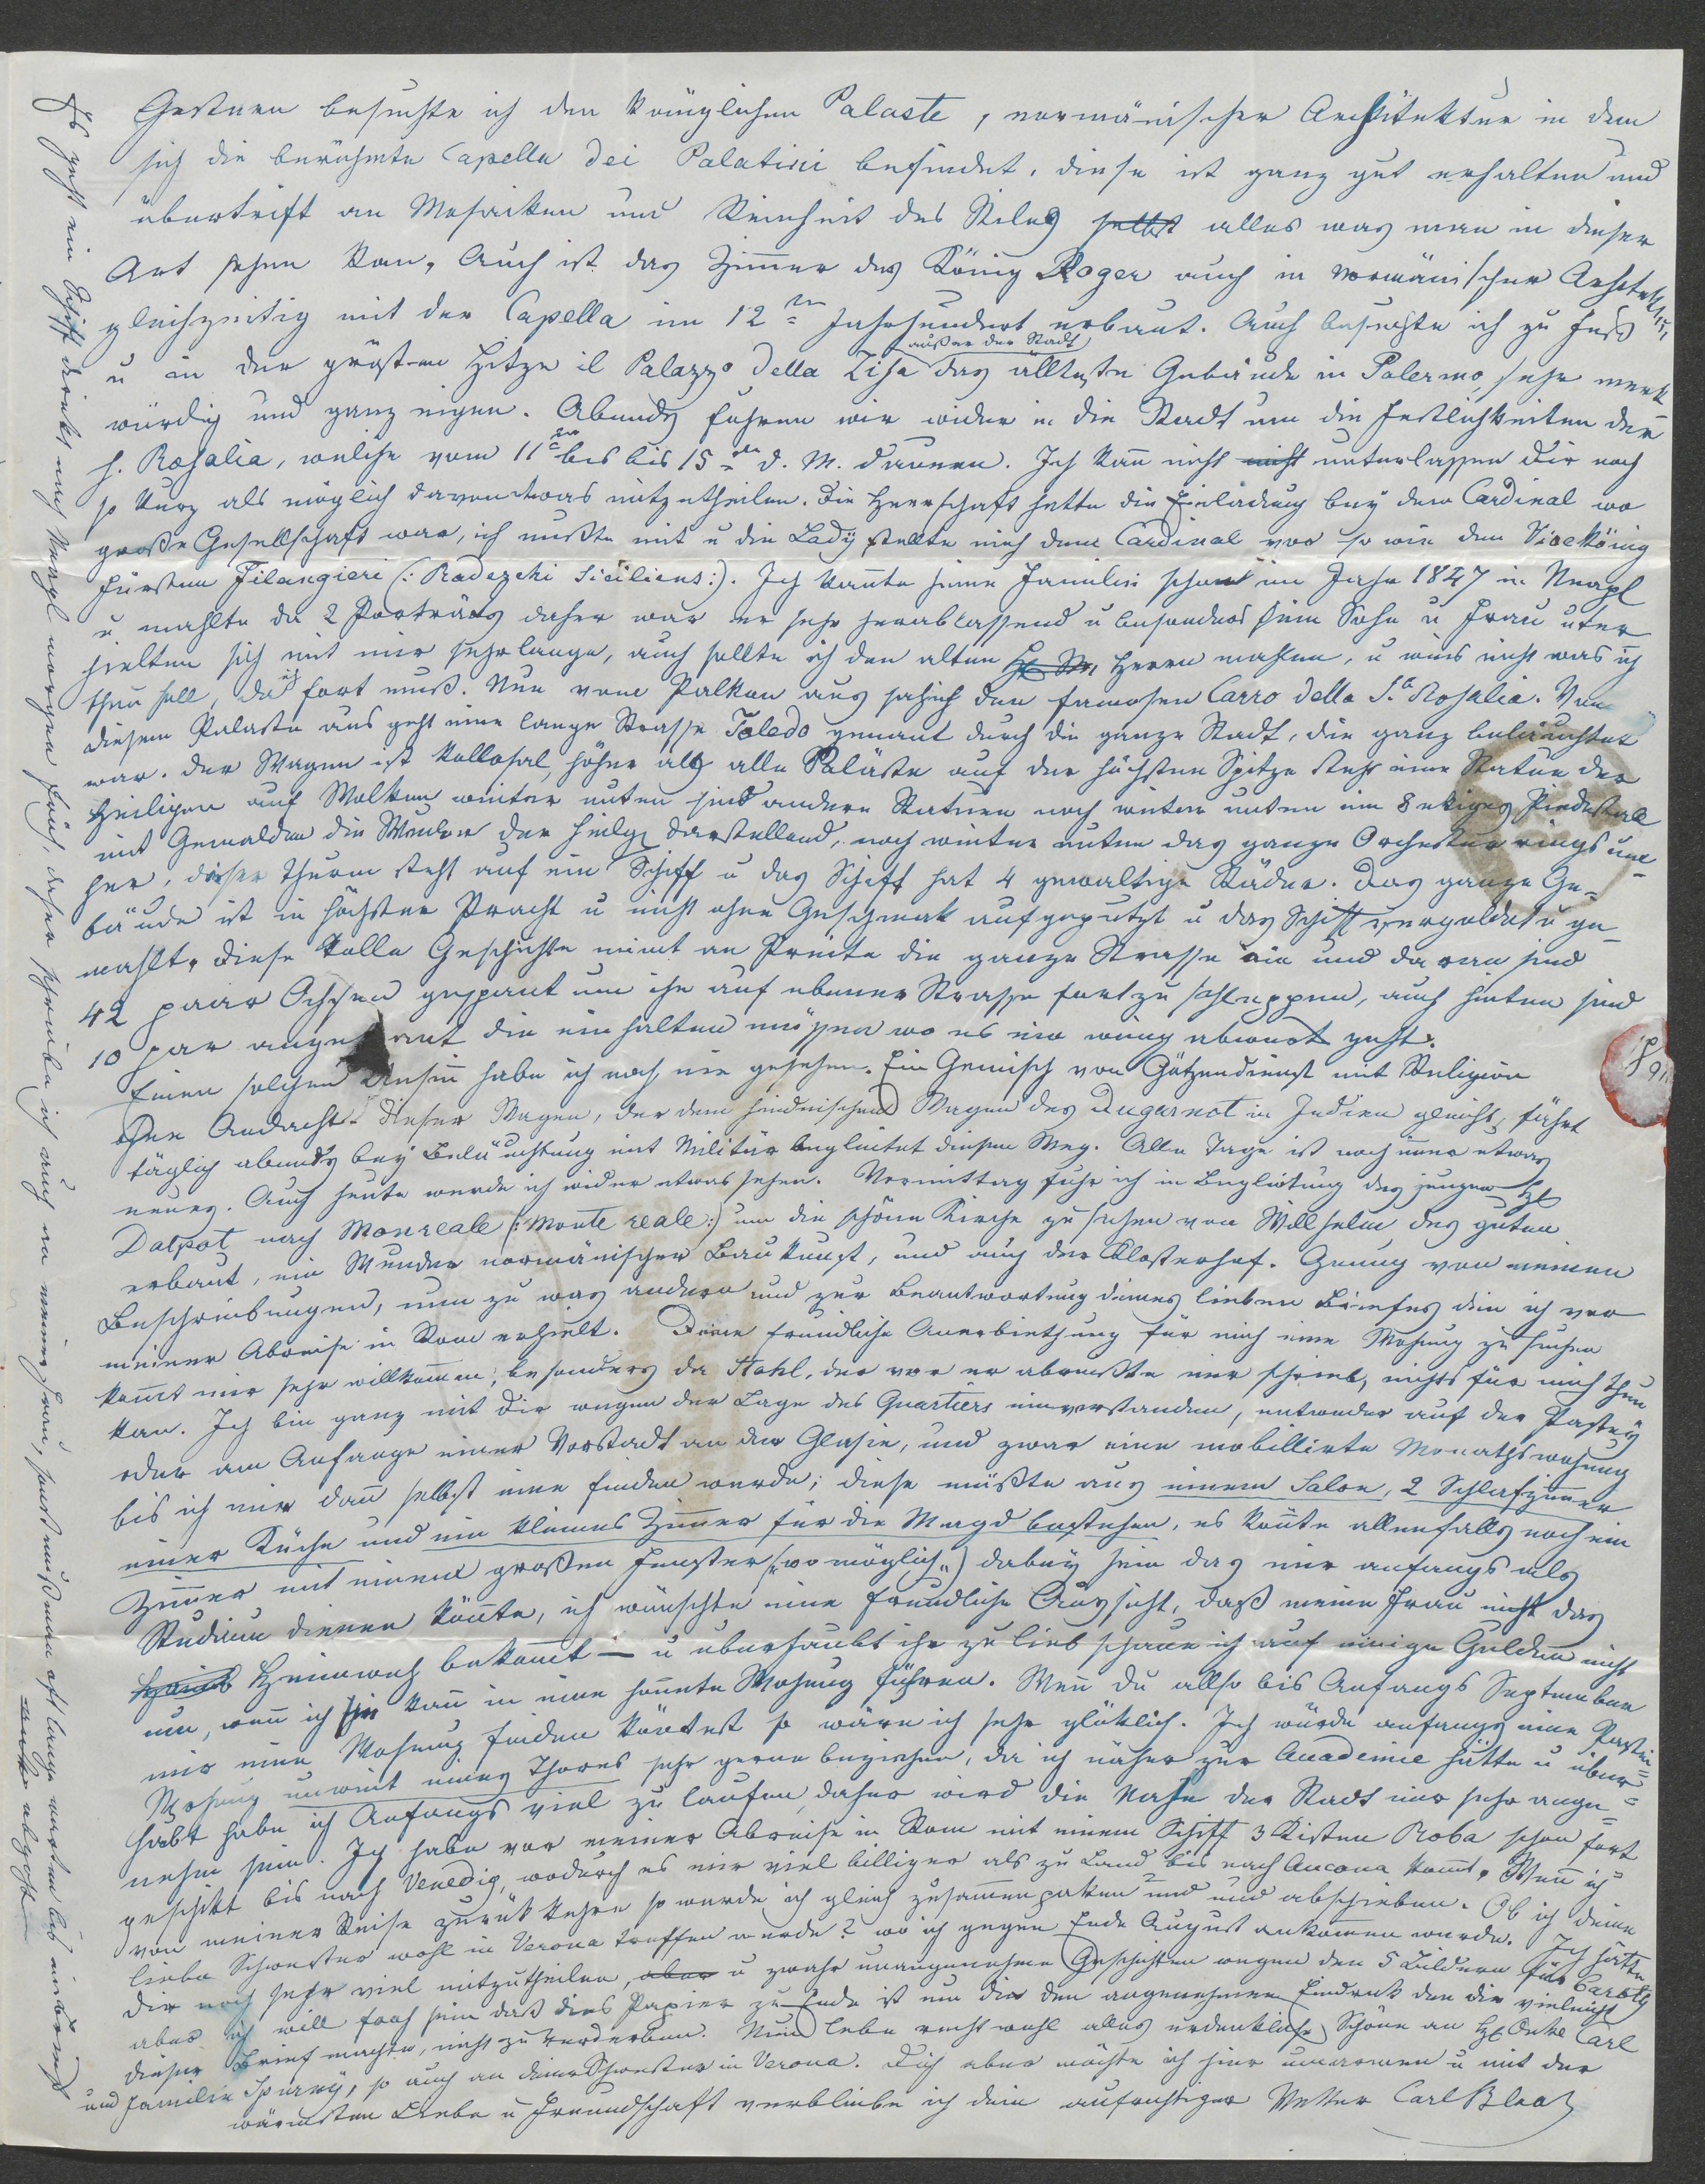 Gestern besuchte ich den königlichen Palaste, normänischer Architektur in dem
sich die berühmte Capella dei Palatini befindet, diese ist ganz gut erhalten und
übertrift an Mosaiken und Reinheit des Stiles selbst alles was man in dieser
Art sehen kan. Auch ist das Zimmer des König Roger auch in normänischer Archtektur,
gleichzeitig mit der Capella im 12ten Jahrhundert erbaut. Auch besuchte ich zu Fuß
außer der Stadt
u in der grösten Hitze il Palazzo della Zisa das ällteste Gebäude in Palermo sehr merk-
würdig und ganz eigen. Abends fuhren wir wider in die Stadt um die Festlichkeiten der
h. Rosalia, welche vom 11ten bis bis 15ten d. M. dauern. Ich kan nicht nicht unterlassen dir noch
so kurz als möglich davon etwas mitzutheilen. Die Herrschaft hatte die Einladung bey dem Cardinal wo
große Gesellschaft war, ich mußte mit u die Lady stellte mich dem Cardinal vor so wie dem Vicekönig
Fürsten Filangieri (: Radezchi Siciliens :). Ich kannte seine Familie schon im Jahr 1847 in Neapl
u mahlte da 2 Porträts daher war er sehr herablassend u besonders sein Sohn u Frau unter
hielten sich mit mir sehr lange, auch sollte ich den alten Herrn mahlen, u weis nicht was ich
thun soll, da ich fort muß. Nun vom Palkon aus sah ich den famosen Carro della S.a Rosalia. Von
diesem Palaste aus geht eine lange Strasse Toledo genant durch die ganze Stadt, die ganz beläuchtet
war. Der Wagen ist kollosal, höher als alle Paläste auf der höchsten Spitze steht eine Statue der
Heiligen auf Wolken weiter unten sind andere Statuen noch weiter unten ein 8 ekiges Piedestall
mit Gemälden die Wunder der Heilg darstellend, noch weiter unten das ganze Orchester rings um-
her, dieser Thurm steht auf ein Schiff u das Schiff hat 4 gewaltige Räder. Das ganze Ge-
bäude ist in höchster Pracht u nicht ohne Geschmak aufgeputzt u das Schiff vergoldet u ge-
mahlt. Diese tolle Geschichte nimt an Breite die ganze Strasse ein und daran sind
42 paar Ochsen gespant um ihn auf ebener Strasse fortzuschleppen, auch hinten sind
10 par ange ant die einhalten müssen wo es ein wenig abwerts geht.
Einen solchen Unsin habe ich noch nie gesehen. Ein Gemisch von Götzendienst mit Religion
ohne Andacht. Dieser Wagen, der dem heidnischen Wagen des Dugarnot in Indien gleicht, fährt
täglich abends bey Beläuchtung mit Militär begleitet diesen Weg. Alle Tage ist noch imer etwas
neues. Auch heute werde ich wider etwas sehen. Vormittag fuhr ich in Begleitung des jungen H
Dalpot nach Monreale (: Monte reale :) um die schöne Kirche zu sehen von Willhelm des guten
erbaut, ein Wunder normänischer Baukunst, und auch der Klosterhof. Genug von meinen
Beschreibungen, nun zu was andern und zur Beantwortung deines lieben Briefes den ich vor
meiner Abreise in Rom erhielt. Deine freundliche Anerbiethung für mich eine Wohnung zu suchen
komt mir sehr willkomen, besonders da Stohl, der vor er abreißte mir schrieb, nichts für mich thun
kan. Ich bin ganz mit dir wegen der Lage des Quartiers einverstanden, entweder auf der Pastey
oder am Anfange einer Vorstadt an der Glasie, und zwar eine mobillirte Monathswohnung
bis ich mir dan selbst eine finden werde; diese müßte aus einem Salon, 2 Schlafzimer
einer Küche und ein kleines Zimer für die Magd bestehen, es könte allenfalls noch ein
Zimer mit einem großen Fenster (wo möglich) dabey sein das mir anfangs als
Studium dienen könte, ich wünschte eine freundliche Aussicht, daß meine Frau nicht das
Heimweh bekomt — u überhaubt ihr zu lieb schaue ich auf einige Gulden nicht
nur, wen ich sie kan in eine honnete Wohnung führen. Wen du allso bis Anfangs September
mir eine Wohnung finden köntest so wäre ich sehr glüklich. Ich würde anfangs eine Pastei-
Wohnung unweit eines Thores sehr gerne beziehen, da ich näher zur Academie hätte u über-
haubt habe ich Anfangs viel zu laufen, daher wird die Nähe der Stadt mir sehr ange-
nehm sein. Ich habe vor meiner Abreise in Rom mit einem Schiff 3 Kisten Roba schon fort
geschikt bis nach Venedig, wodurch es mir viel billiger als zu Land bis nach Ancona komt. Wen ich
von meiner Reise zurükkehre so werde ich gleich zusammenpaken und und abschieben. Ob ich deine
liebe Schwester wohl in Verona treffen werde? wo ich gegen Ende August ankomen werde. Ich hätte
dir noch sehr viel mitzutheilen, aber u zwahr unangenehme Geschichten wegen den 5 Bildern für
aber ich will froh sein daß dies Papier zu Ende ist um dir den angenehmen Eindruck den dir vieleicht
dieser Brief machte, nicht zu verderben. Nun lebe recht wohl alles erdenkliche Schöne an H Onkel Carl
und Familie Spurny, so auch an deine Schwester in Verona. Dich aber möchte ich hier umarmen u mit der
wärmsten Liebe u Freundschaft verbleibe ich dein aufrichtiger Vetter Carl Blaas
Es geht ein Schiff direkt nach Neapl morgen früh, daher schreibe ich auch an meine Frau, sonst muß man oft lange warten bis ein Brief
abgeht